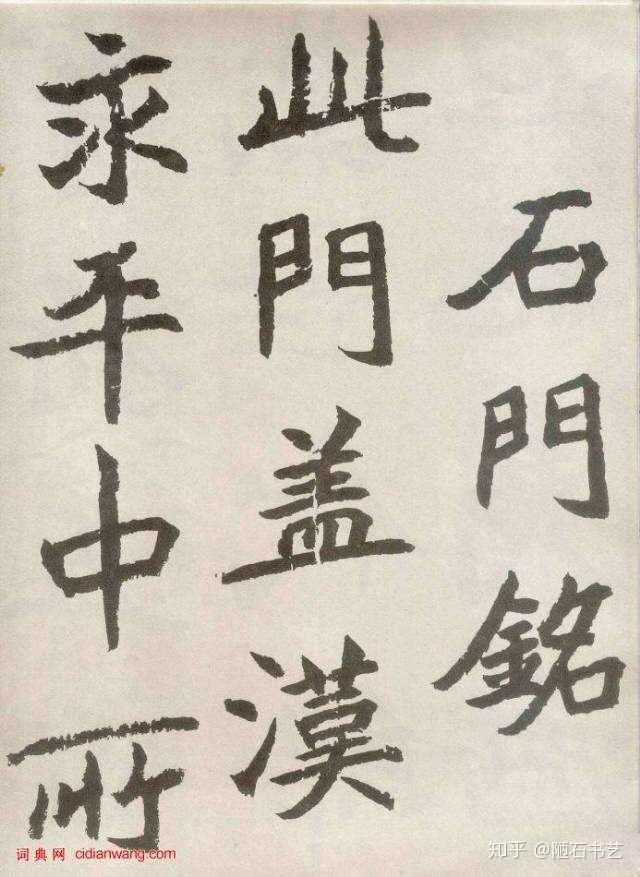 石門銘
此門盖漢
永平中所
词典网 cidianwang.com
知乎 @陋石书艺